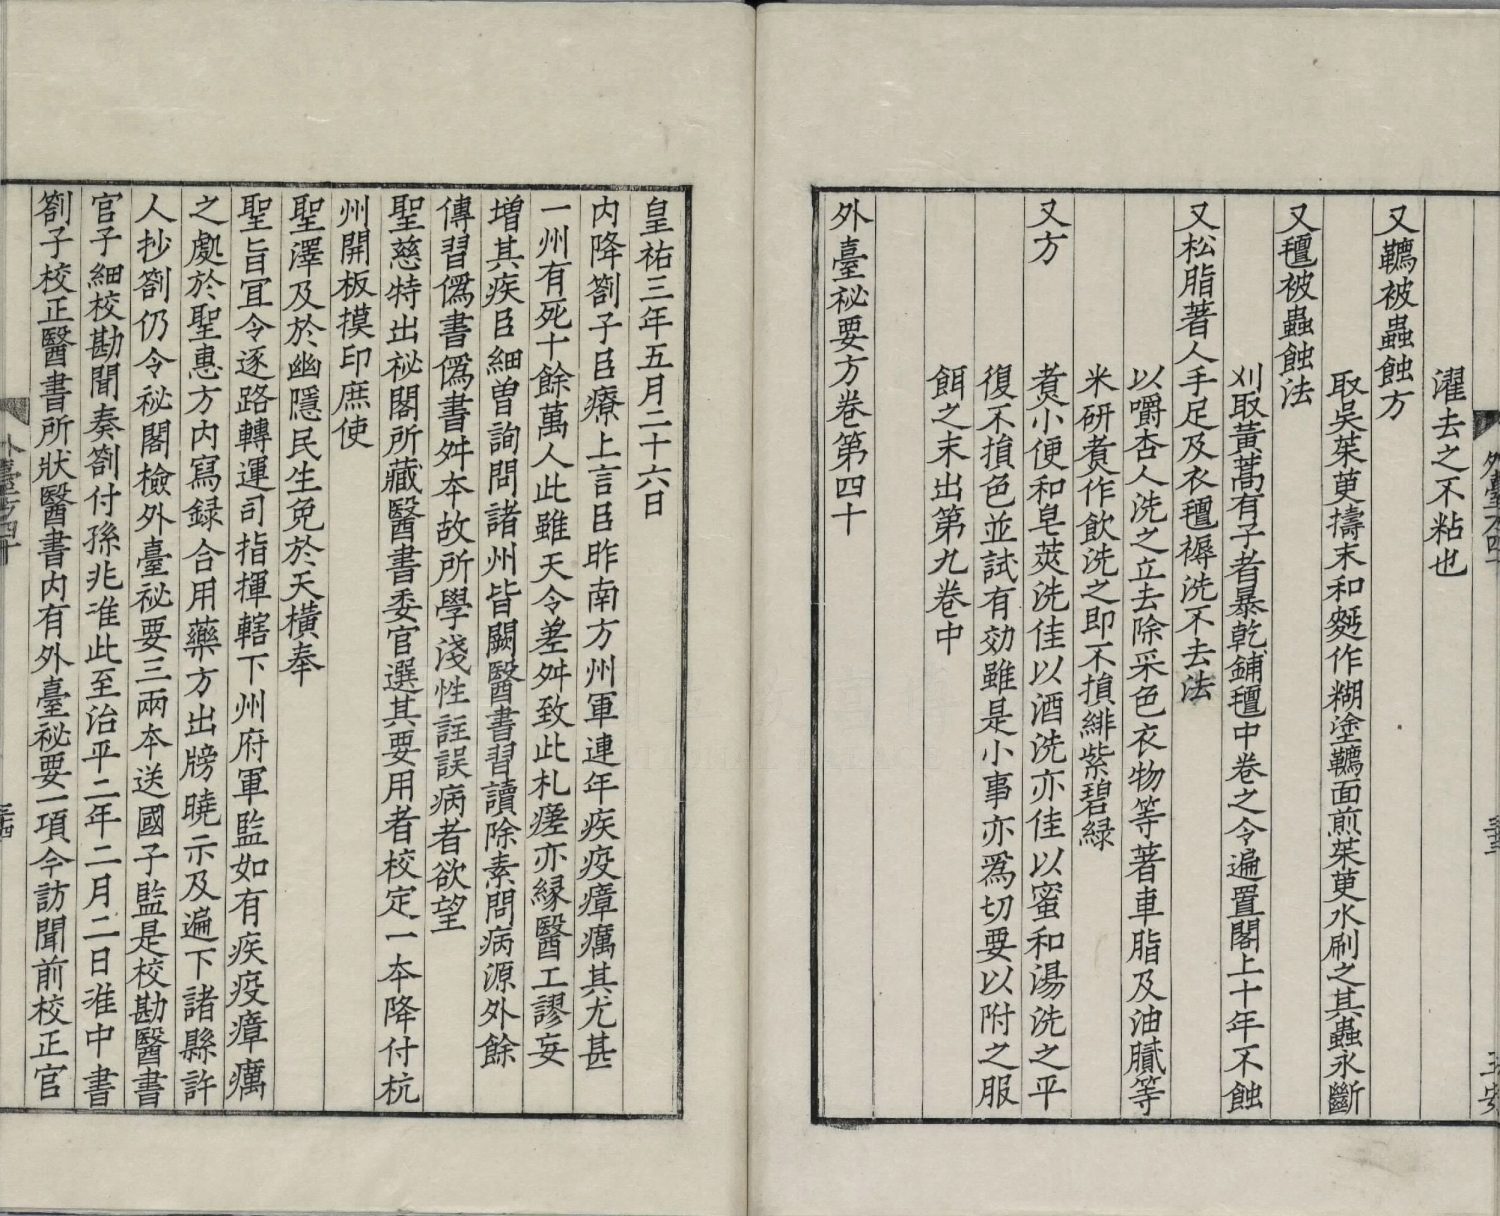 濯去之不粘也
又韉被蟲蝕方
取吳茱萸擣末和麪作糊塗韉面煎茱萸水刷之其蟲永斷
又氊被蟲蝕法
刈取黃蒿有子者暴乾鋪氊中卷之令遍置閣上十年不蝕
又松脂著人手足及衣氊褥洗不去法
以嚼杏人洗之立去除采色衣物等著車脂及油膩等
米研煑作飲洗之即不損緋紫碧緑
又方
煑小便和皂莢洗佳以酒洗亦佳以蜜和湯洗之平
復不損色並試有効雖是小事亦爲切要以附之服
餌之末出第九卷中
外臺秘要方卷第四十
皇祐三年五月二十六日
内降劄子臣療上言臣昨南方州軍連年疾疫瘴癘其尤甚
一州有死十餘萬人此雖天令差舛致此札瘥亦緣醫工謬妄
增其疾臣細曽詢問諸州皆闕醫書習讀除素問病源外餘
傳習僞書僞書舛夲故所學淺性詿誤病者欲望
聖慈特出祕閣所藏醫書委官選其要用者校定一本降付杭
州開板摸印庶使
聖澤及於幽隱民生免於夭橫奉
聖旨冝令逐路轉運司指揮轄下州府軍監如有疾疫瘴癘
之處於聖惠方内寫録合用藥方出牓曉示及遍下諸縣許
人抄劄仍令祕閣檢外臺祕要三兩夲送國子監是校勘醫書
官子細校勘聞奏劄付孫兆准此至治平二年二月二日准中書
劄子校正醫書所狀醫書内有外臺祕要一項今訪聞前校正官